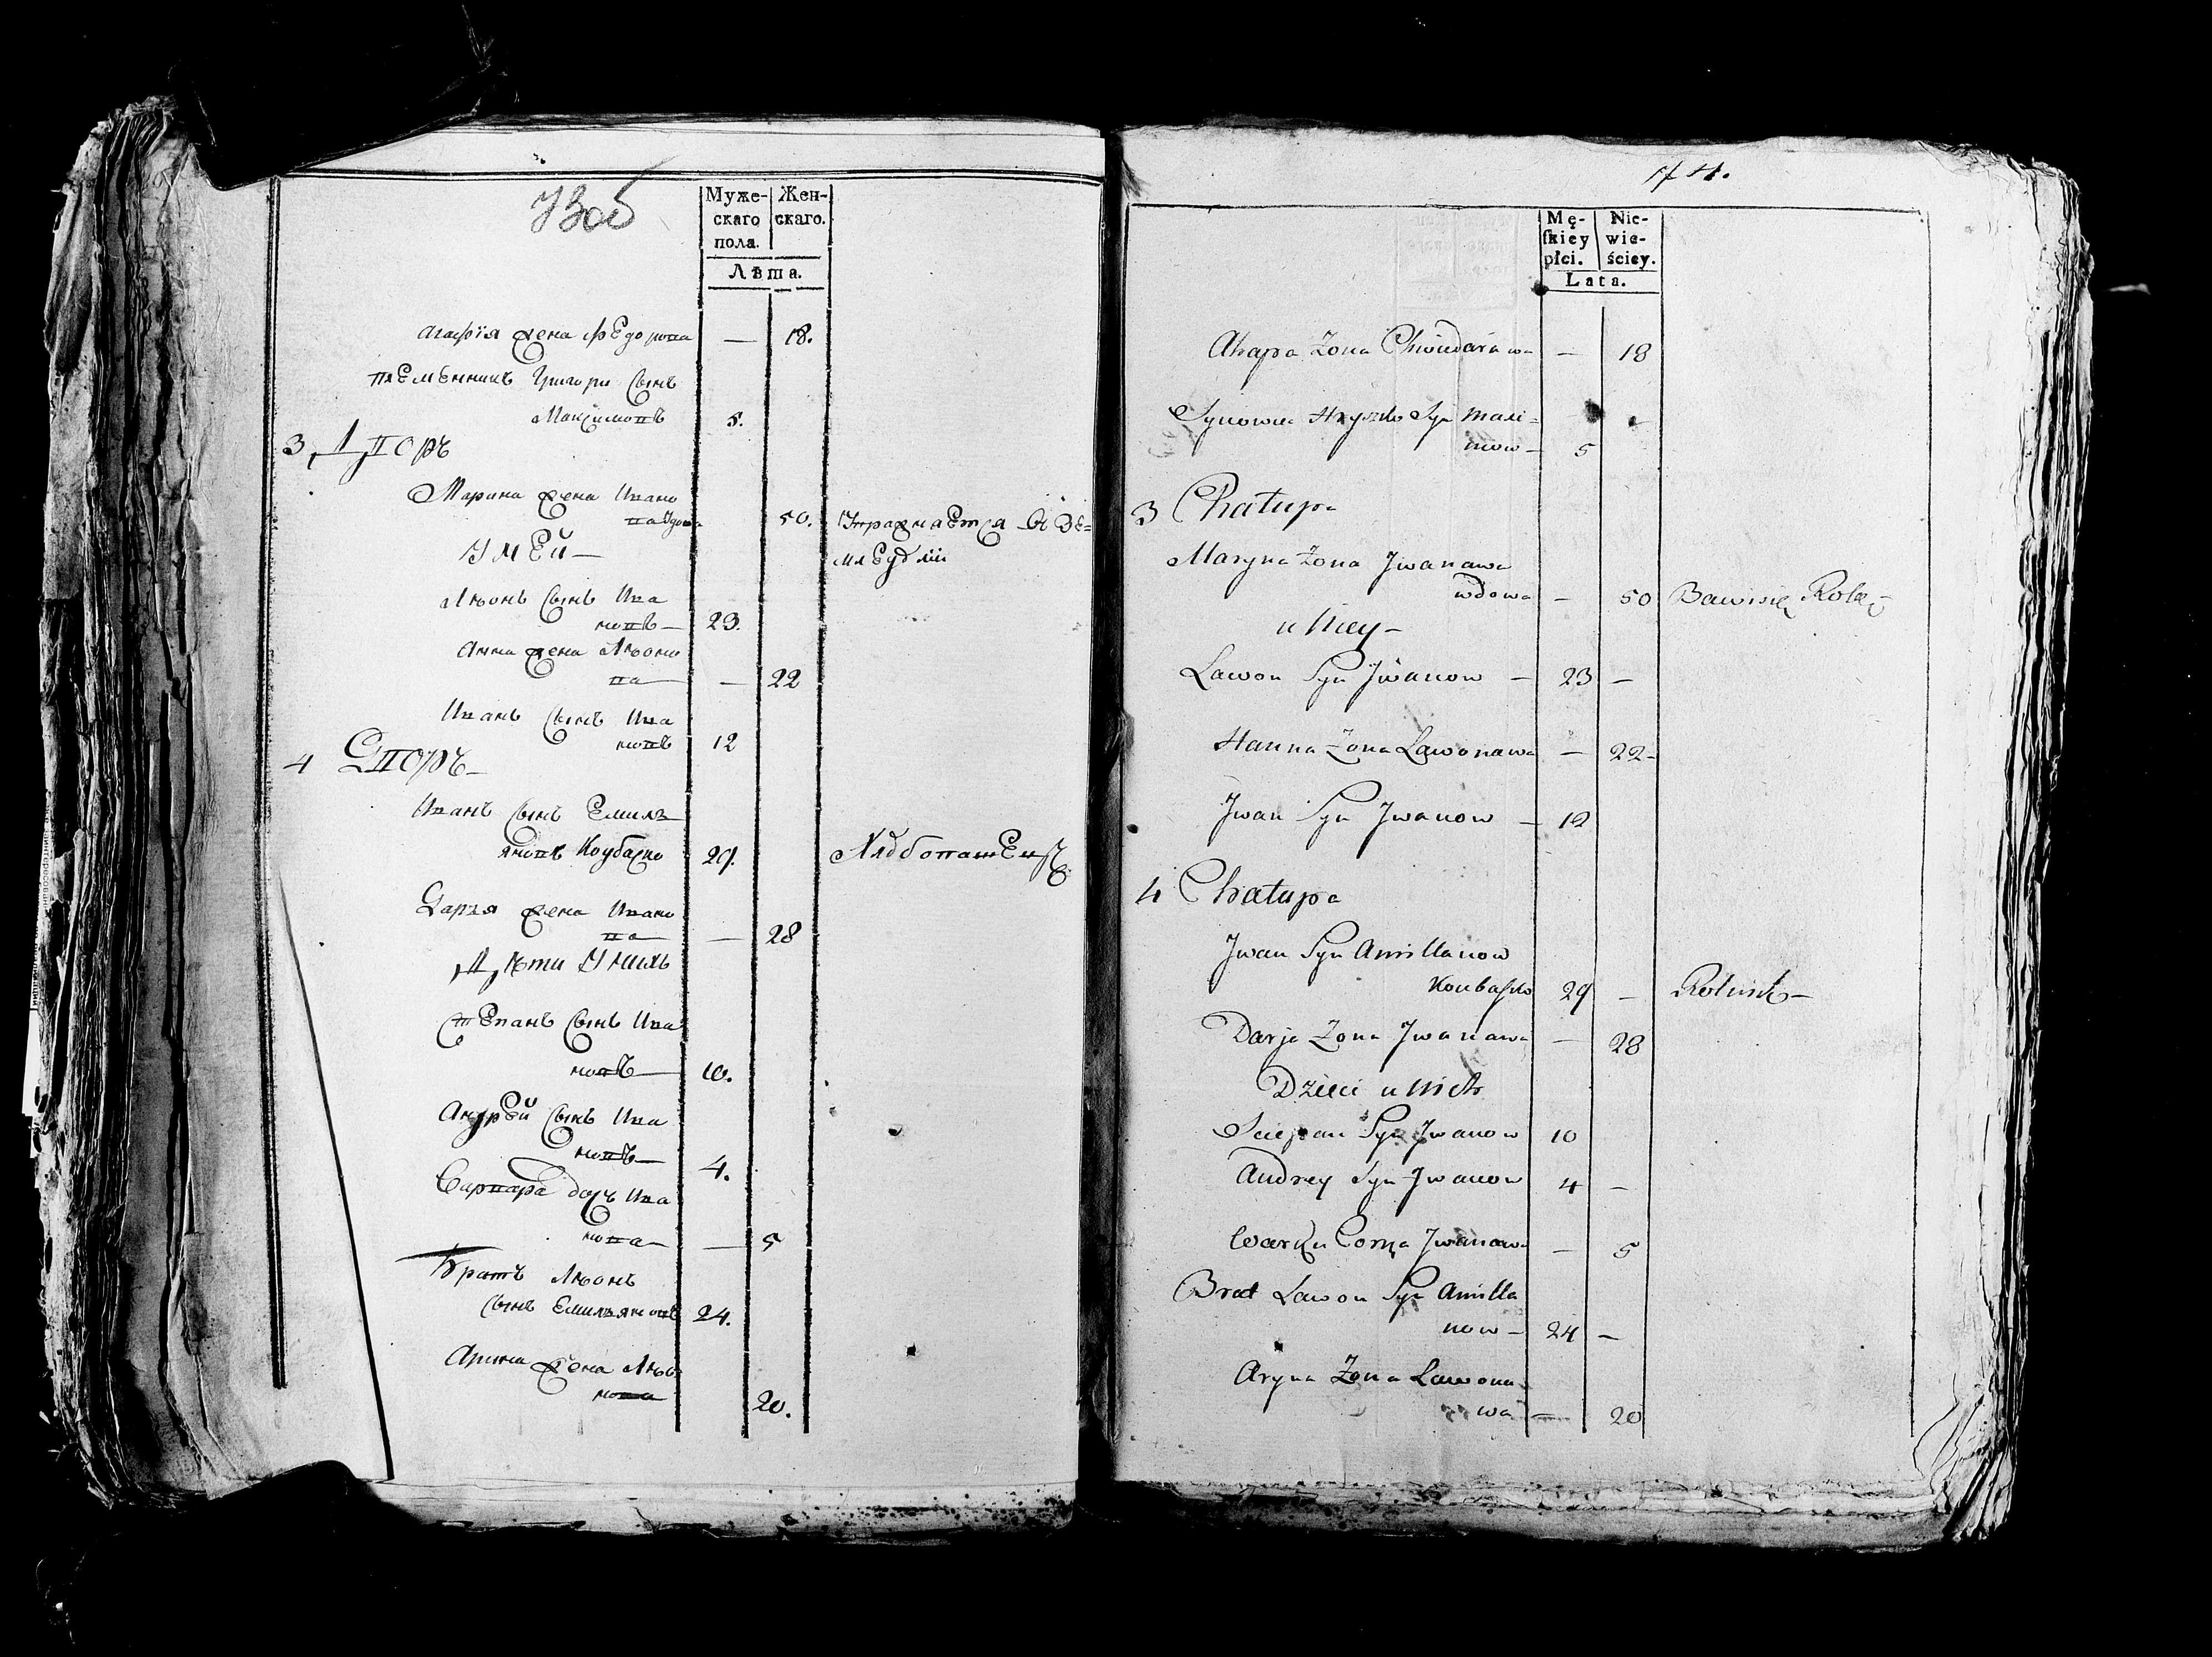 73об
Муже- Жен-
скаго скаго.
пола.
Лѣта.
Агафїя жена Федорова — 18.
племенникъ Григори сынъ
Максимовъ 5.
3 Дворъ
Марина жена Ивано
ва вдова 50. Упражняется въ зе=
мледѣлїи
У ней —
Лѣонъ сынъ Ива
новъ — 23.
Анна жена Лѣоно
ва — — 22
Иванъ сынъ Ива
новъ 12
4 Дворъ —
Иванъ сынъ Емиль
яновъ Коубаско 29. Хлѣбопашецъ
Дарья жена Ивано
ва — — 28
Дѣти у нихъ
Степанъ сынъ Ива
новъ — 10.
Андрей сынъ Ива
новъ — 4.
Варвара дочь Ива
нова — — 5
Братъ Лѣонъ
сынъ Емильяновъ 24.
Арина жена Лѣо
нова 20.
74.
Mę- Nie-
ſkiey wie-
płci. ściey.
Lata.
Ahapa Żona Chwiedarawa — 18
Synowiec Hryszko Syn Maxi=
mow — 5
3 Chatupa
Maryna Żona Jwanawa
wdowa — 50 Bawi się Rolą —
u Niey —
Lawon Syn Jwanow — 23 —
Hanna Żona Lawonawa — 22 —
Jwan Syn Jwanow — 12
4 Chatupa
Jwan Syn Amillanow
Koubasko 29 — Rolnik —
Darja Żona Jwanawa — 28
Dzieci u Nich
Sciepan Syn Jwanow 10
Andrey Syn Jwanow 4 —
Corka Jwanawa — 5
Brat Lawon Syn Amilla
now — 24 —
Aryna Żona Lawona
wa — 20